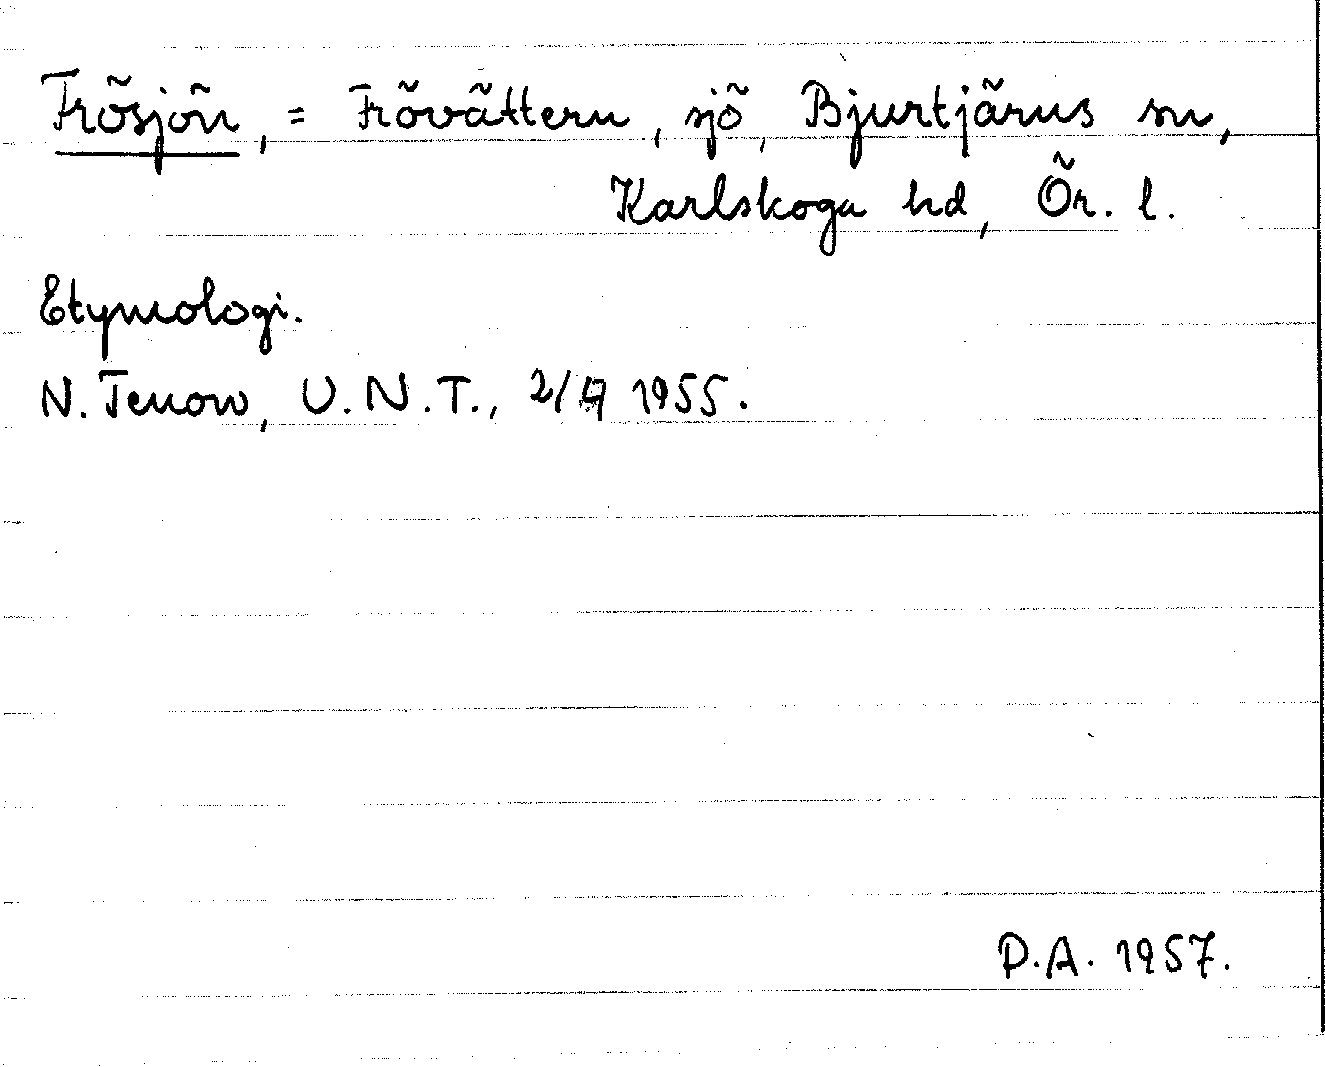 Frösjön, = Frövättern, sjö, Bjurtjärns sn,
Karlskoga hd, Ör. l.
Etymologi.
N. Tenow, U.N.T., 2/9 1955.
P.A. 1957.